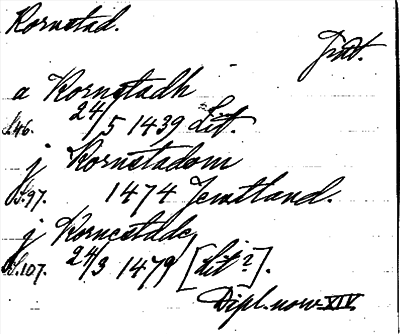 Kornstad.
Jmt.
a Kornstadh
S.46. 24/5 1439 Lit.
j Kornstadom
S.97. 1474 Jemtland.
j Kornestade
S.107. 24/3 1479 [Lit?].
Dipl. norv. XIV.